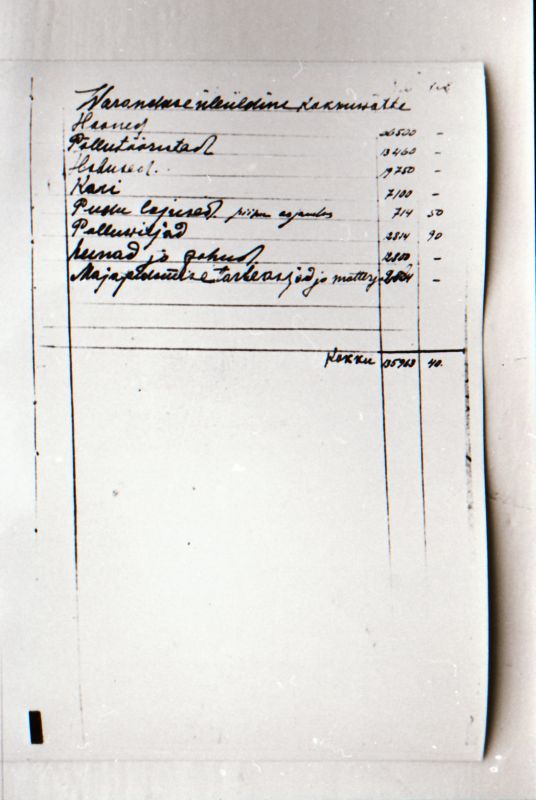 Warandase üleüldine kokkuwõtte
Hooned 26500 –
Põllutööriistad 13460 –
Hobused 19750 –
Kari 7100 –
Pudu lojused 714 50
Põlluwiljad 2814 90
heinad ja põhud 12800 –
Majapidamise tarbeasjad ja matterj –
Kokku 135963 40.